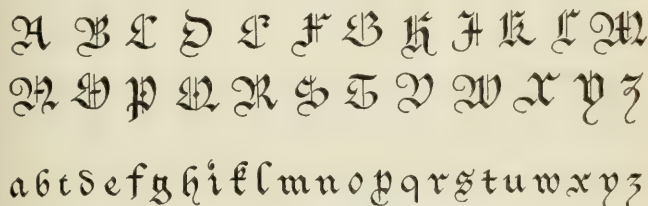 A B C D E F G H I K L M
N O P Q R S T V W X Y Z
a b c d e f g h i k l m n o p q r s t u w x y z